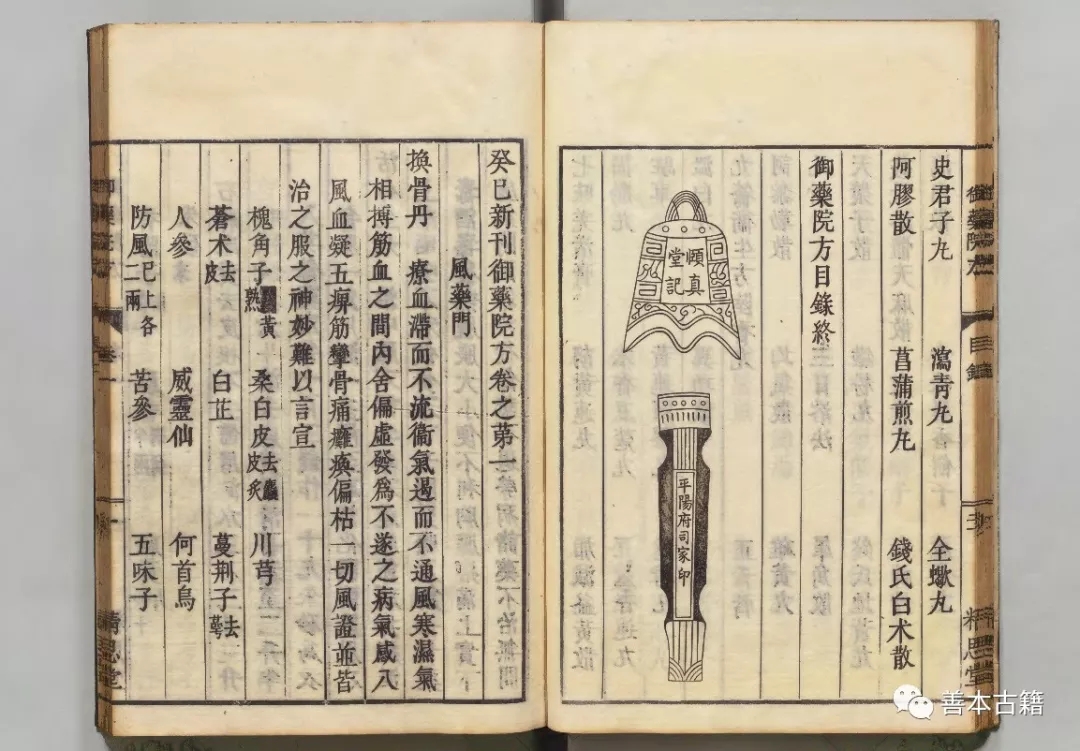 史君子丸 瀉青丸 全蠍丸
阿膠散 菖蒲煎丸 錢氏白术散
御藥院方目錄終
頤真
堂記
平陽府司家印
御藥院方
目錄
精思堂
癸巳新刊御藥院方卷之第一
風藥門
換骨丹 療血滯而不流衛氣遏而不通風寒濕氣
相搏筋血之間內舍偏虛發為不遂之病氣感八
風血凝五痹筋攣骨痛癱瘓偏枯一切風證並皆
治之服之神妙難以言宣
槐角子熟黃 桑白皮去麤皮炙 川芎
蒼术去皮 白芷 蔓荆子去萼
人參 威靈仙 何首烏
防風已上各二兩 苦參 五味子
卷一
精思堂
善本古籍